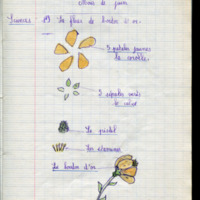 Mois de juin
Sciences 1°) La fleur de bouton d'or.
5 pétales jaunes
la corolle.
5 sépales verts
le calice
Le pistil
Les étamines
Le bouton d'or